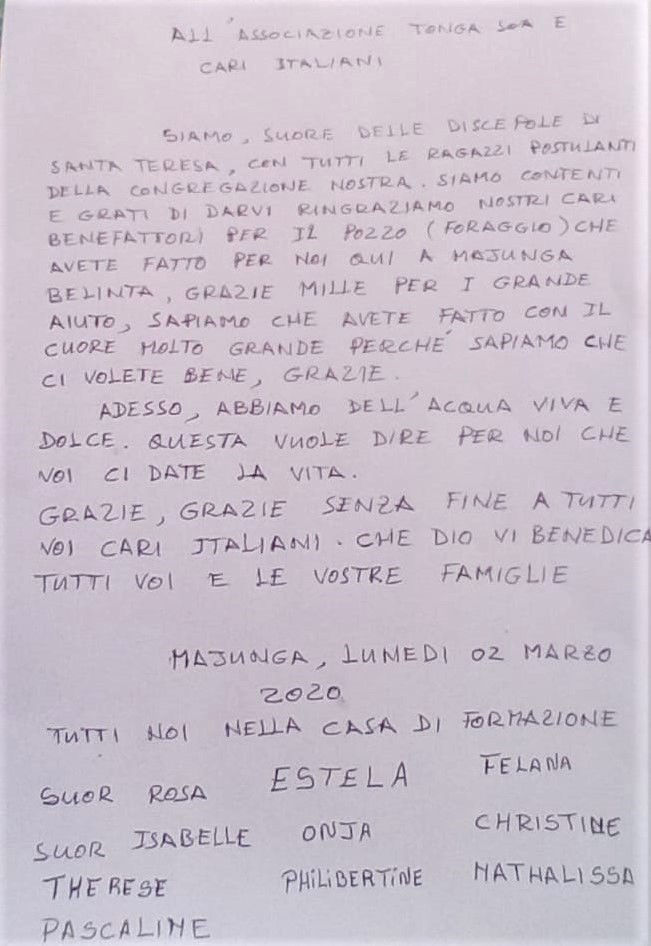 ALL'ASSOCIAZIONE TONGA SOA E
CARI ITALIANI
SIAMO, SUORE DELLE DISCEPOLE DI
SANTA TERESA, CON TUTTI LE RAGAZZI POSTULANTI
DELLA CONGREGAZIONE NOSTRA. SIAMO CONTENTI
E GRATI DI DARVI RINGRAZIAMO NOSTRI CARI
BENEFATTORI PER IL POZZO (FORAGGIO) CHE
AVETE FATTO PER NOI QUI A MAJUNGA
BELINTA, GRAZIE MILLE PER I GRANDE
AIUTO, SAPIAMO CHE AVETE FATTO CON IL
CUORE MOLTO GRANDE PERCHÉ SAPIAMO CHE
CI VOLETE BENE, GRAZIE.
ADESSO, ABBIAMO DELL'ACQUA VIVA E
DOLCE. QUESTA VUOLE DIRE PER NOI CHE
NOI CI DATE LA VITA.
GRAZIE, GRAZIE SENZA FINE A TUTTI
VOI CARI ITALIANI. CHE DIO VI BENEDICA
TUTTI VOI E LE VOSTRE FAMIGLIE
MAJUNGA, LUNEDI 02 MARZO
2020
TUTTI NOI NELLA CASA DI FORMAZIONE
SUOR ROSA ESTELA FELANA
SUOR ISABELLE ONJA CHRISTINE
THERESE PHILIBERTINE NATHALISSA
PASCALINE